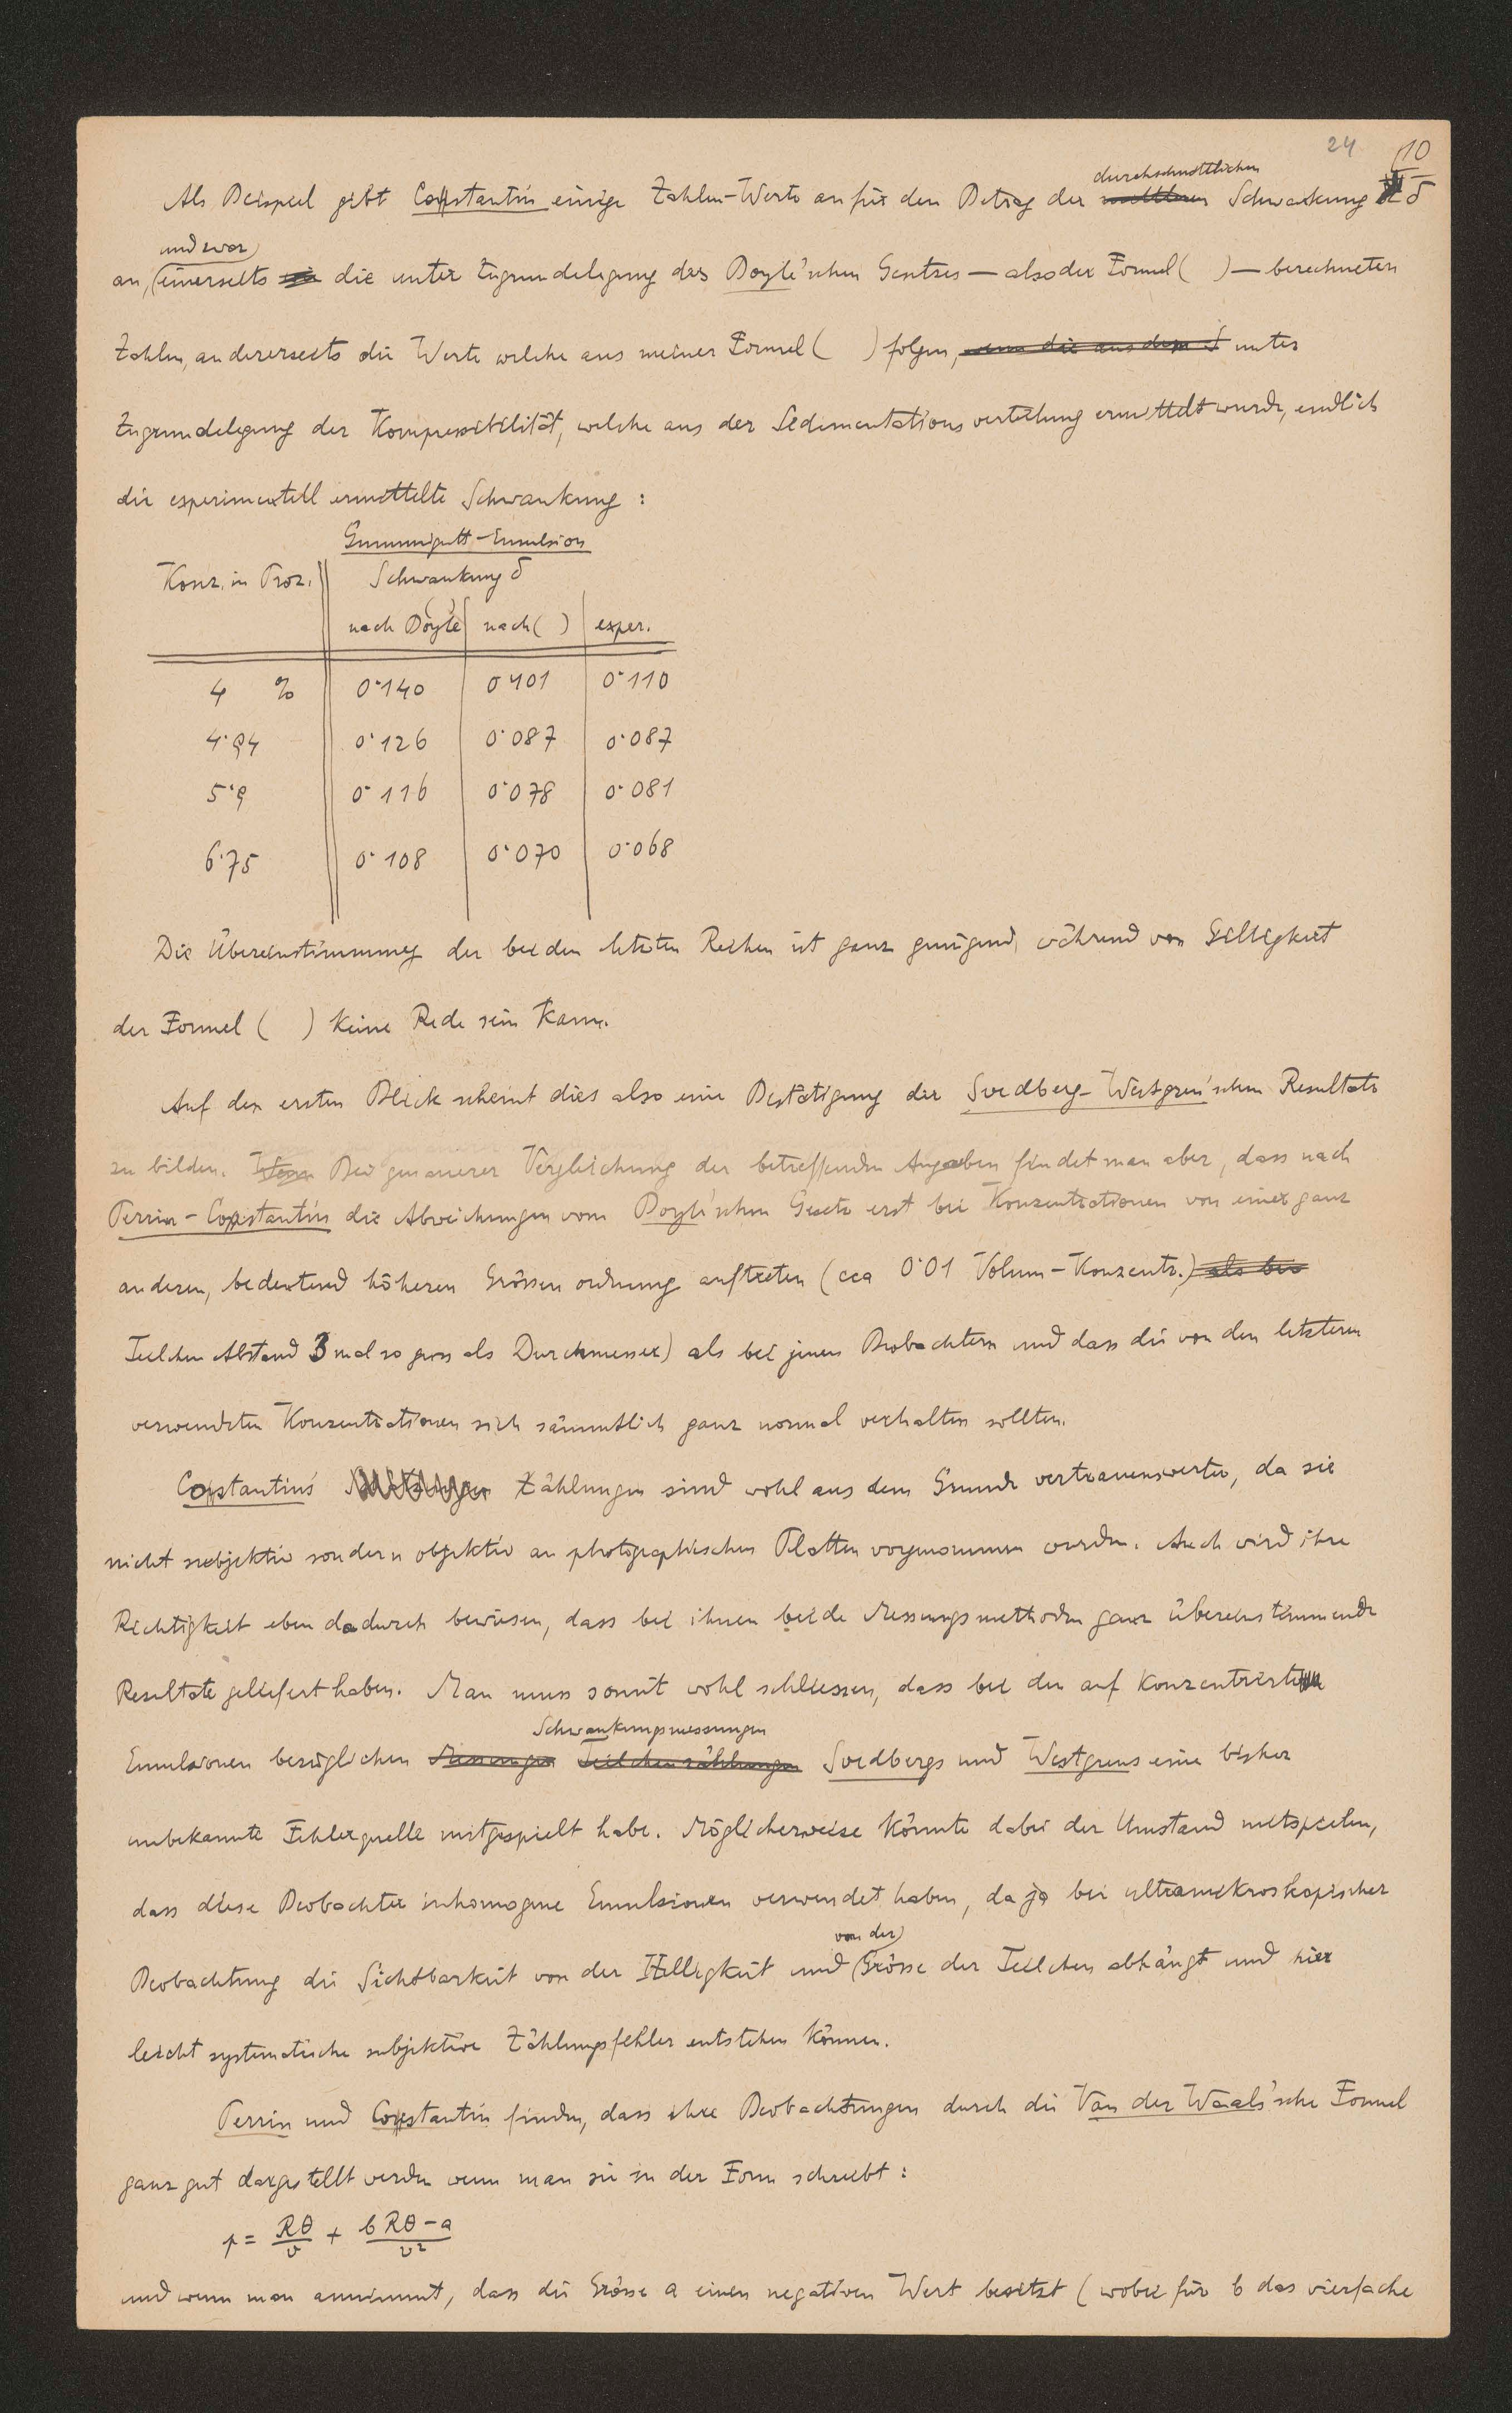 24 10
durchschnittlichen
Als Beispiel gibt Constantin einige Zahlen-Werte an für den Betrag der mittleren Schwankung δ
und zwar
an, einerseits die unter Zugrundelegung des Boyle'schen Gesetzes — also der Formel ( ) — berechneten
Zahlen, andererseits die Werte welche aus meiner Formel ( ) folgen, wenn die aus dem unter
Zugrundelegung der Kompressibilität, welche aus der Sedimentationsverteilung ermittelt wurde, endlich
die experimentell ermittelte Schwankung :
Gummigutt-Emulsion
Konz. in Proz. Schwankung δ
nach Boyle ( ) nach ( ) exper.
4 % 0·140 0·101 0·110
4·94 0·126 0·087 0·087
5·9 0·116 0·078 0·081
6·75 0·108 0·070 0·068
Die Übereinstimmung der beiden letzten Reihen ist ganz genügend, während von Gültigkeit
der Formel ( ) keine Rede sein kann.
Auf den ersten Blick scheint dies also eine Bestätigung der Svedberg-Westgren'schen Resultate
zu bilden. Bei genauerer Vergleichung der betreffenden Angaben findet man aber, dass nach
Perrin-Constantin die Abweichungen vom Boyle'schen Gesetz erst bei Konzentrationen von einer ganz
anderen, bedeutend höheren Grössenordnung auftreten (cca 0·01 Volum-Konzentr.) als bei
Teilchen Abstand 3 mal so gross als Durchmesser) als bei jenen Beobachtern und dass die von den letzteren
verwendeten Konzentrationen sich sämmtlich ganz normal verhalten sollten.
Constantins Zählungen sind wohl aus dem Grunde vertrauenswerter, da sie
nicht subjektiv sondern objektiv an photographischen Platten vorgenommen wurden. Auch wird ihre
Richtigkeit eben dadurch bewiesen, dass bei ihnen beide Messungsmethoden ganz übereinstimmende
Resultate geliefert haben. Man muss somit wohl schliessen, dass bei den auf konzentrierte
Schwankungsmessungen
Emulsionen bezüglichen Messungen Teilchenzählungen Svedbergs und Westgrens eine bisher
unbekannte Fehlerquelle mitgespielt habe. Möglicherweise könnte dabei der Umstand mitspielen,
dass diese Beobachter inhomogene Emulsionen verwendet haben, da ja bei ultramikroskopischer
von der
Beobachtung die Sichtbarkeit von der Helligkeit und Grösse der Teilchen abhängt und hier
leicht systematische subjektive Zählungsfehler entstehen können.
Perrin und Constantin finden, dass ihre Beobachtungen durch die Van der Waals'sche Formel
ganz gut dargestellt werden wenn man sie in der Form schreibt :
p = Rθ/v + (bRθ − a)/v²
und wenn man annimmt, dass die Grösse a einen negativen Wert besitzt (wobei für b das vierfache